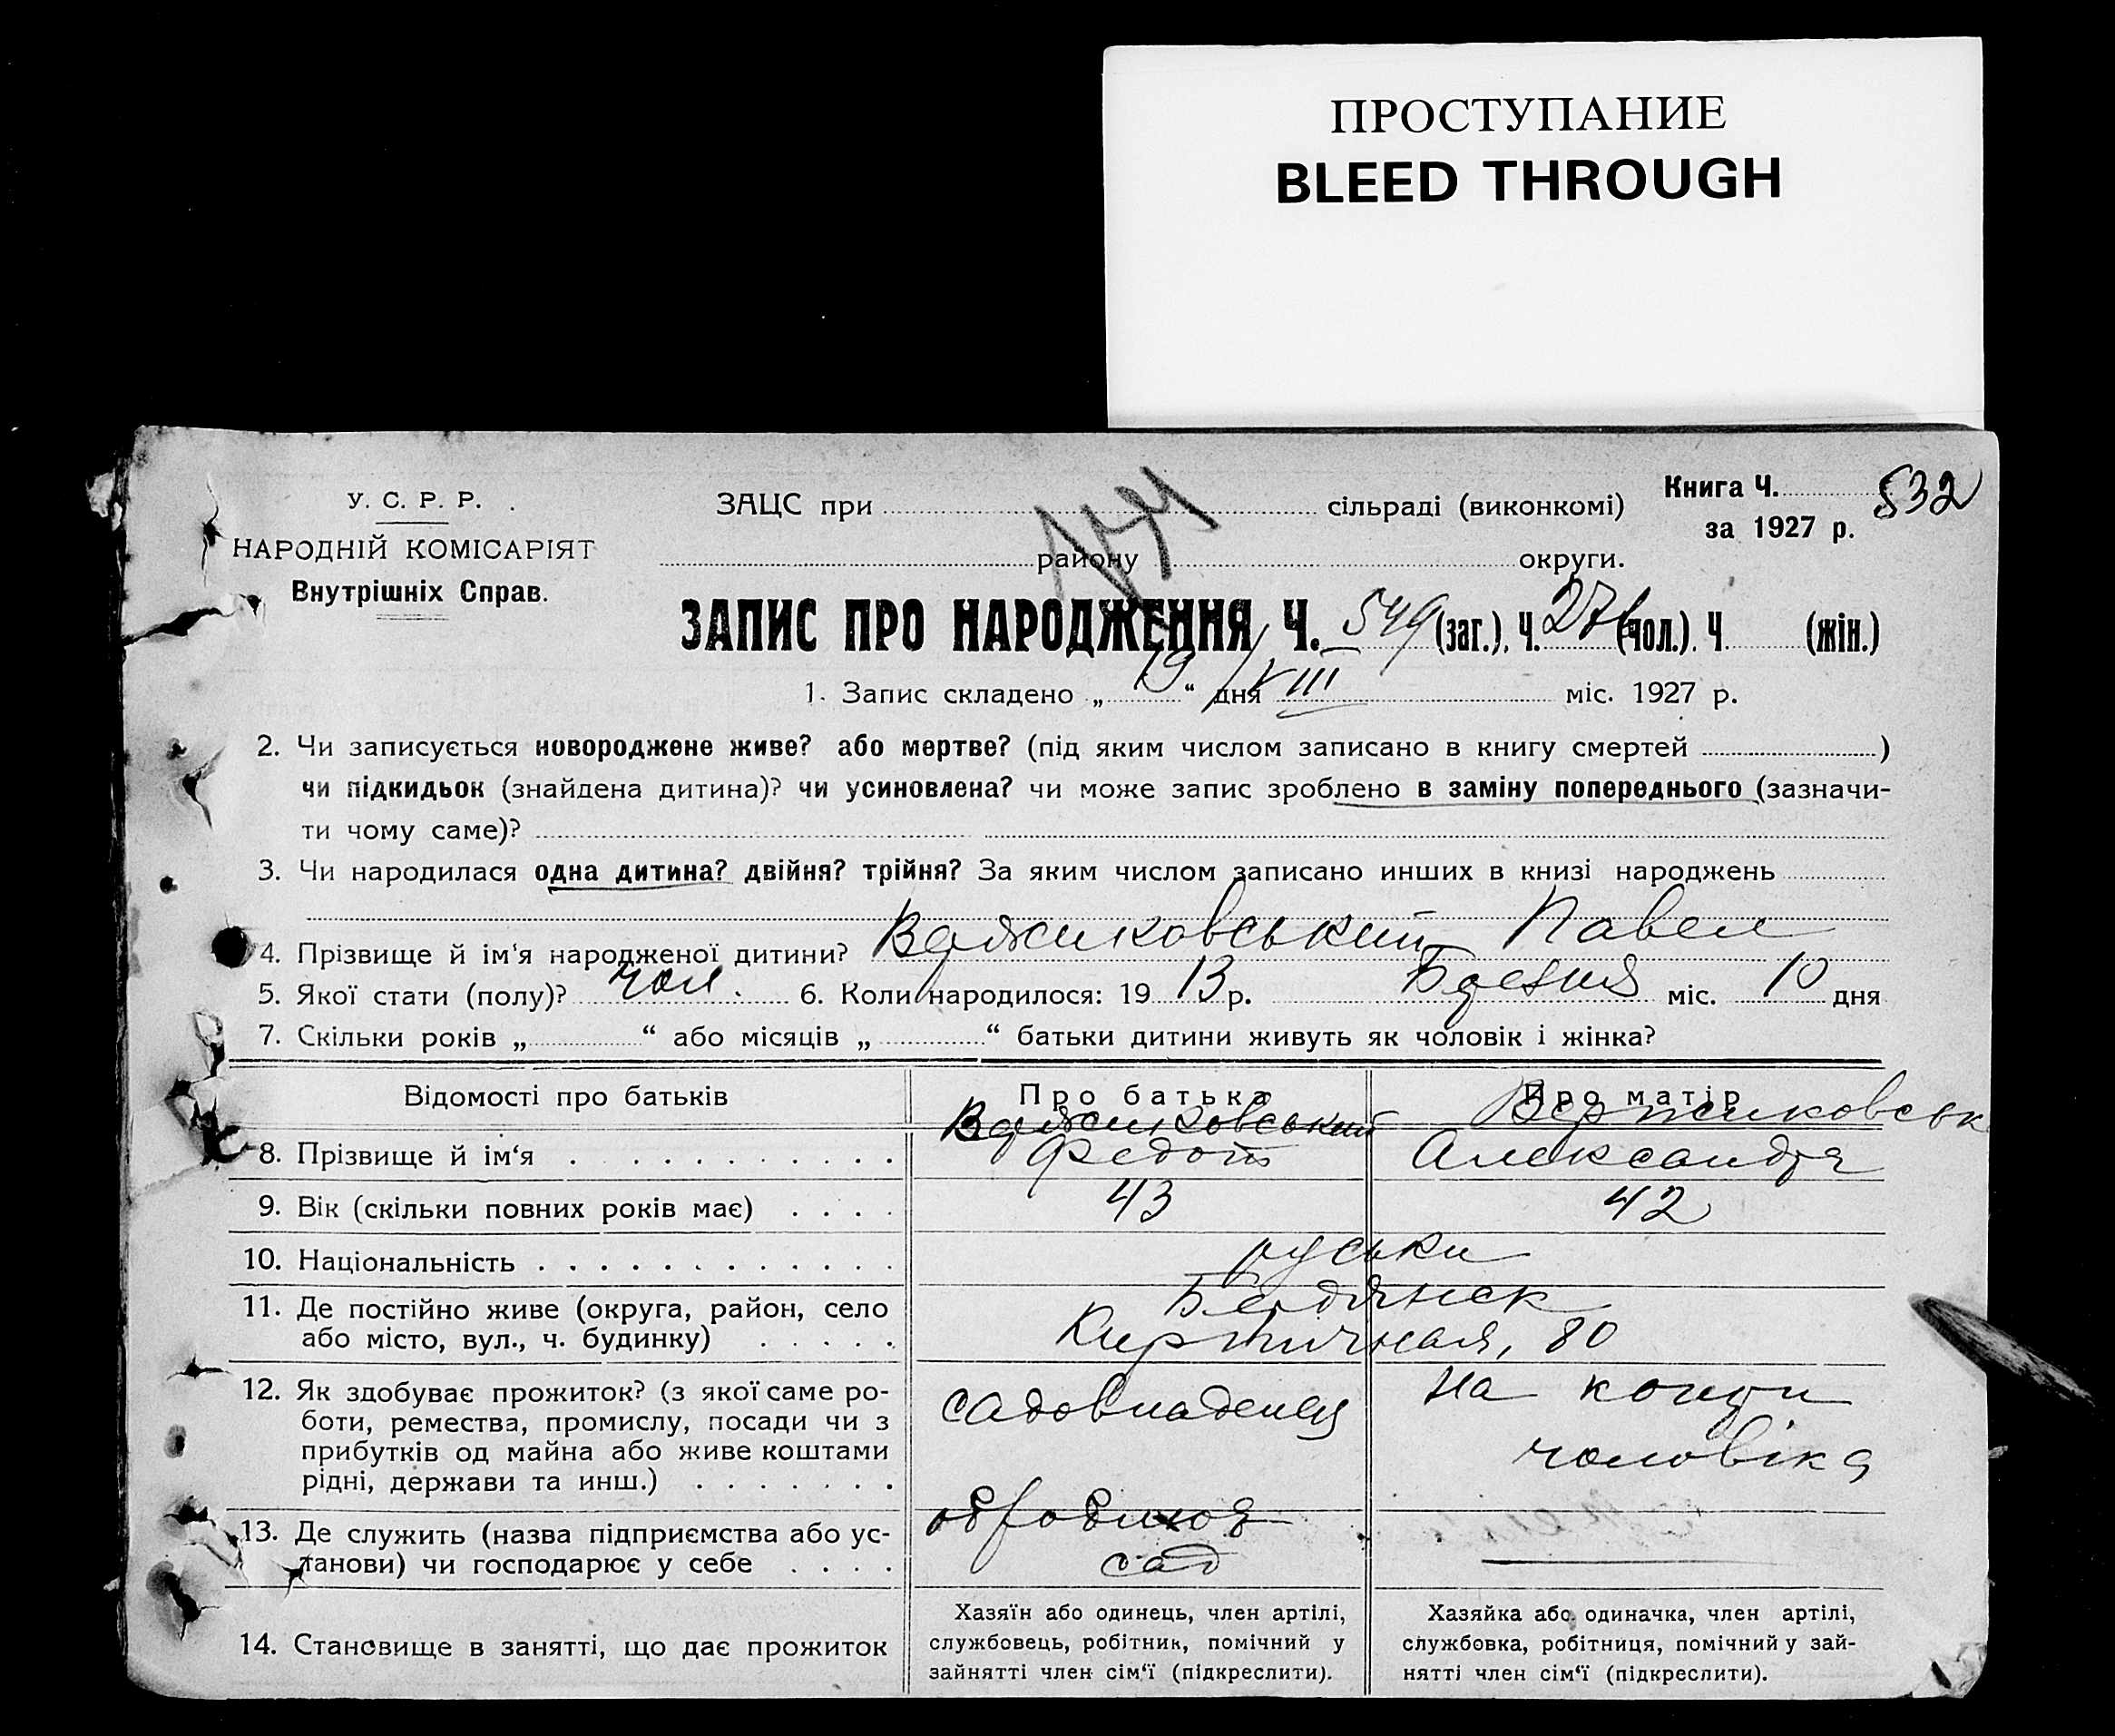 ПРОСТУПАНИЕ
BLEED THROUGH
У. С. Р. Р.
НАРОДНІЙ КОМІСАРІЯТ
Внутрішніх Справ.
ЗАЦС при сільраді (виконкомі)
району округи.
Книга Ч. 532
за 1927 р.
ЗАПИС ПРО НАРОДЖЕННЯ Ч. 549 (заг.), Ч. 276 (чол.). Ч. (жін.)
1. Запис складено „ 19 “ дня VIII міс. 1927 р.
2. Чи записується новороджене живе? або мертве? (під яким числом записано в книгу смертей )
чи підкидьок (знайдена дитина)? чи усиновлена? чи може запис зроблено в заміну попереднього (зазначи-
ти чому саме)?
3. Чи народилася одна дитина? двійня? трійня? За яким числом записано инших в книзі народжень
4. Прізвище й ім‘я народженої дитини? Павел
5. Якої стати (полу)? чол. 6. Коли народилося: 1913 р. Березня міс. 10 дня
7. Скільки років „ “ або місяців „ “ батьки дитини живуть як чоловік і жінка?
Відомості про батьків Про батька Про матір
8. Прізвище й ім‘я Федот Александра
9. Вік (скільки повних років має) 43 42
10. Національність руськи
11. Де постійно живе (округа, район, село Бердянск
або місто, вул., ч. будинку) Кирпичная, 80
12. Як здобуває прожиток? (з якої саме ро-
боти, ремества, промислу, посади чи з
прибутків од майна або живе коштами
рідні, держави та инш.)
садовладелец
на кошти
чоловіка
13. Де служить (назва підприємства або ус-
танови) чи господарює у себе
сад
14. Становище в занятті, що дає прожиток
Хазяїн або одинець, член артілі,
службовець, робітник, помічний у
зайнятті член сім‘ї (підкреслити).
Хазяйка або одиначка, член артілі,
службовка, робітниця, помічний у зай-
нятті член сім‘ї (підкреслити).